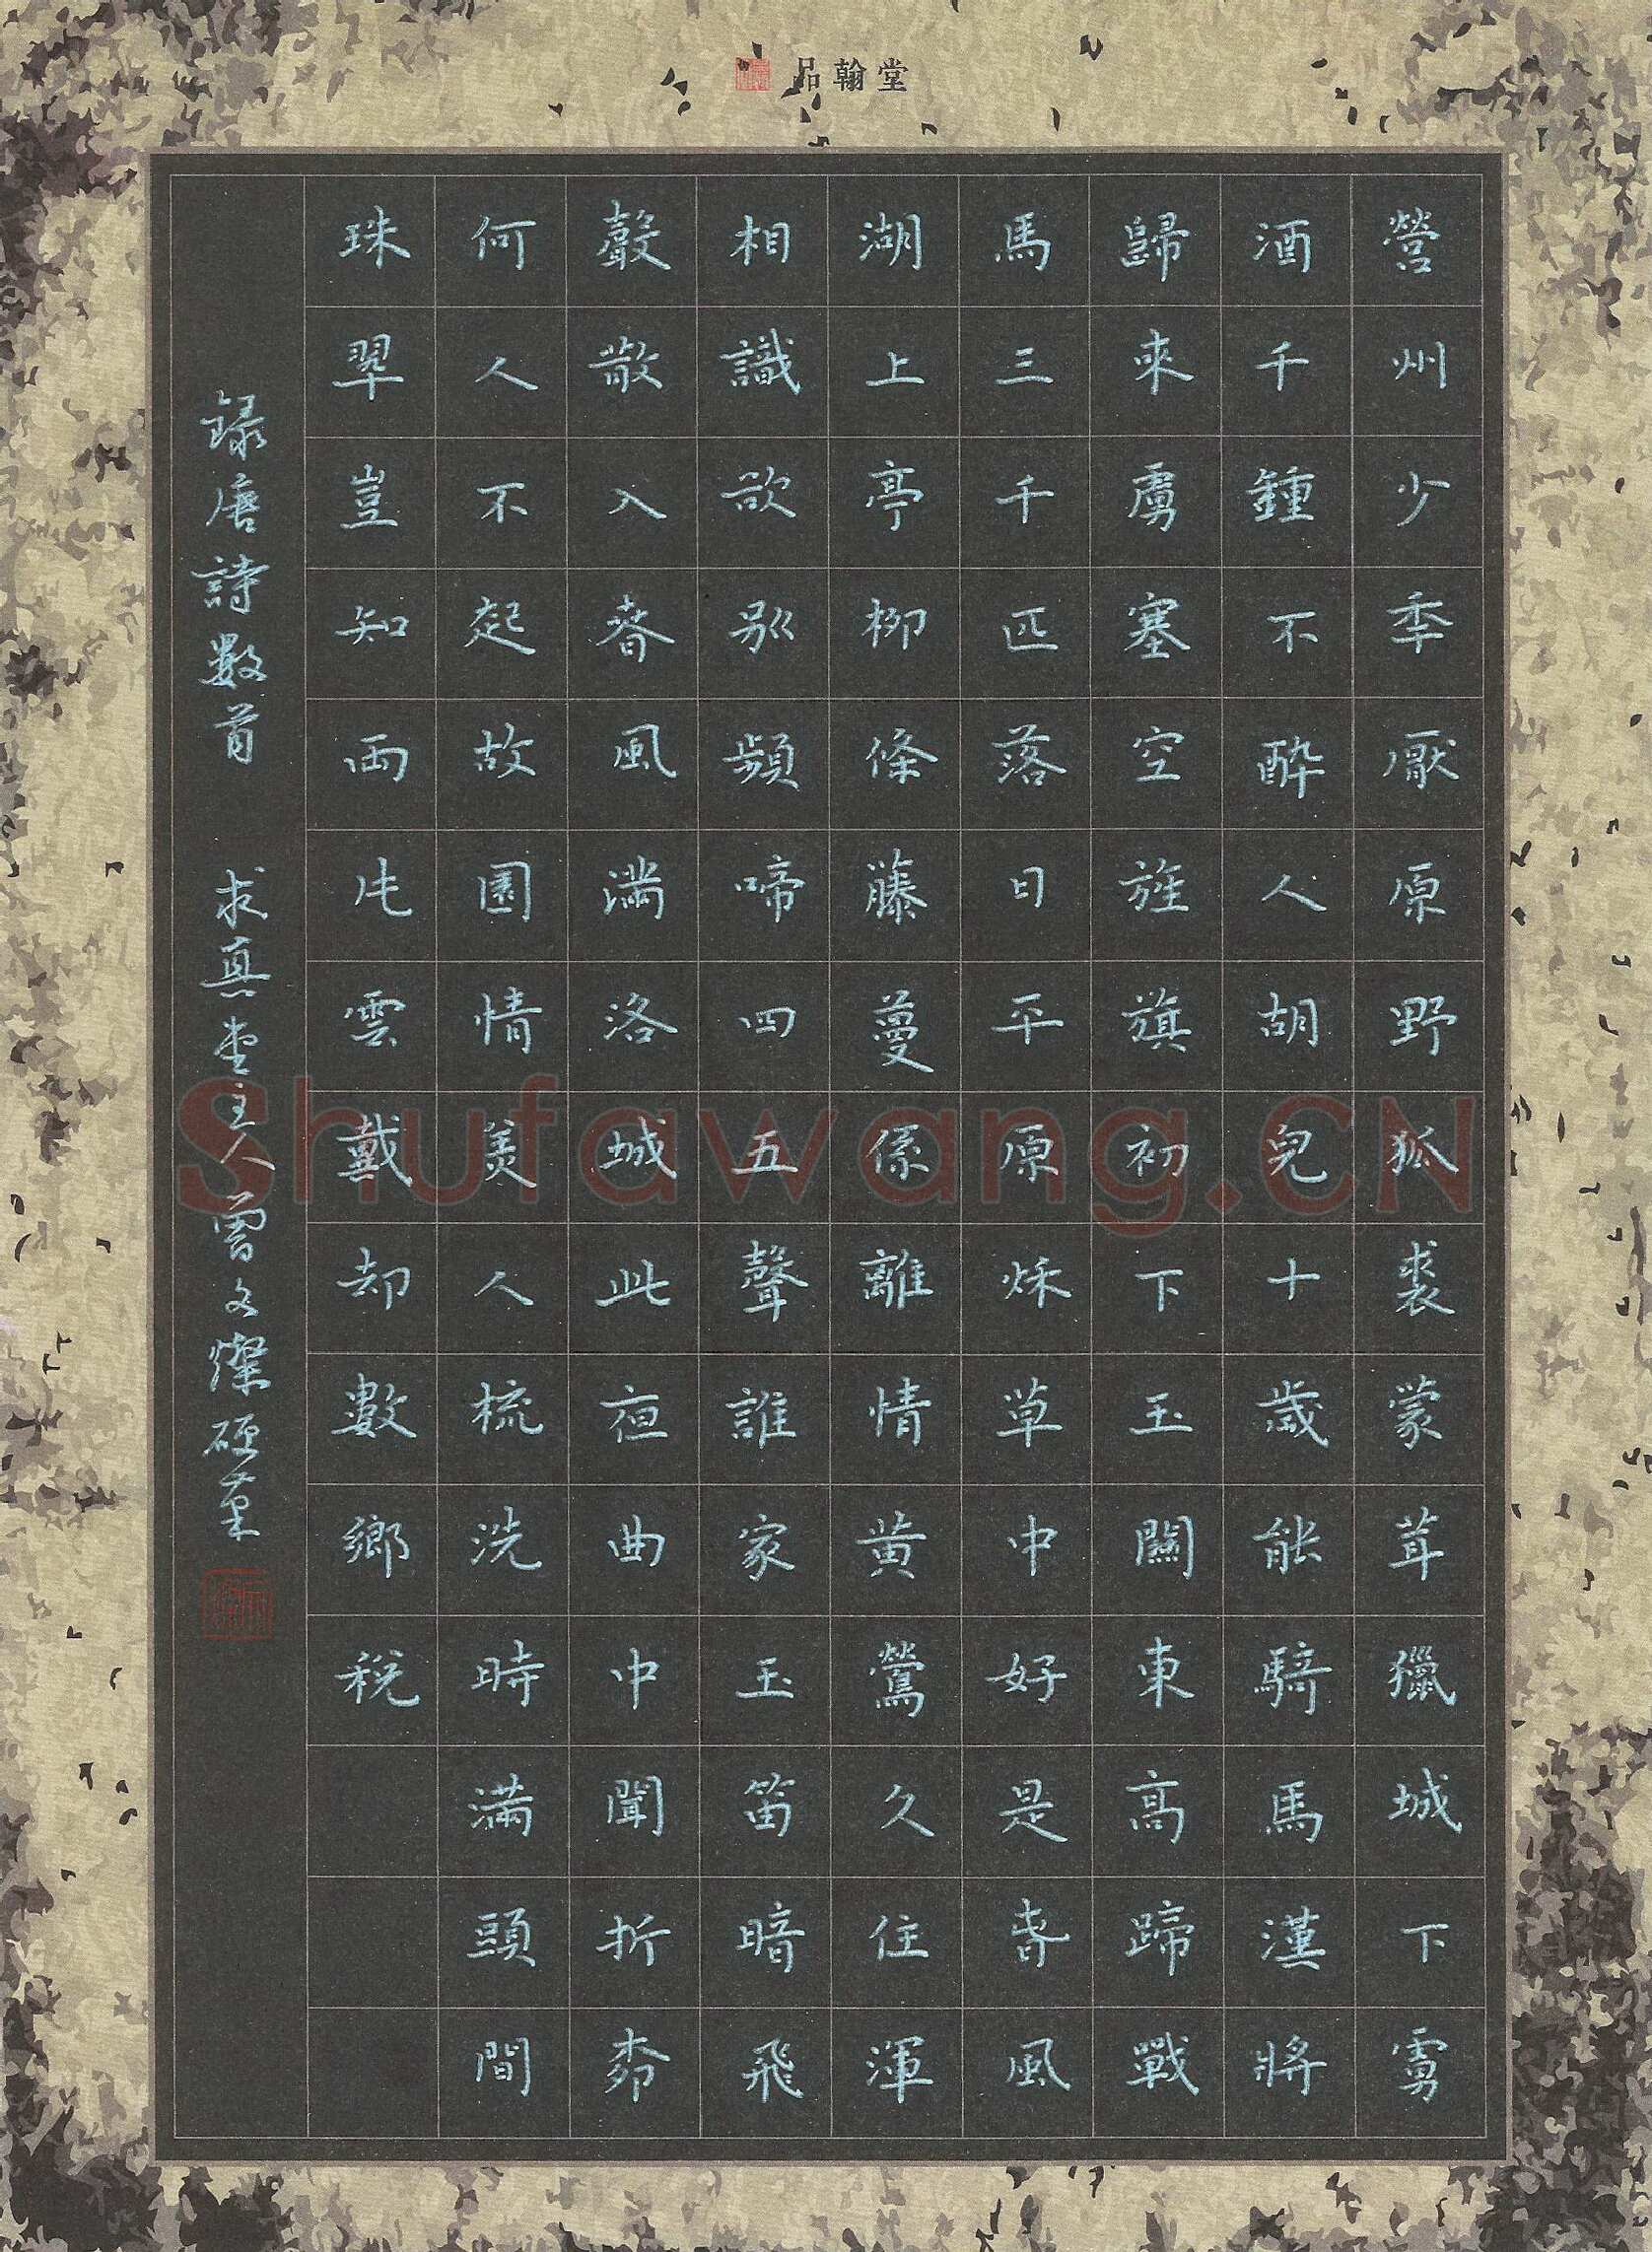 品翰堂
營州少秊厭原野狐裘蒙茸獵城下虜
酒千鍾不醉人胡兒十歲能騎馬漢將
歸来虜塞空旌旗初下玉關東高蹄戰
馬三千匹落日平原秌草中好是春風
湖上亭柳條藤蔓係離情黄鶯久住渾
相識欲別頻啼四五聲誰家玉笛暗飛
聲散入春風滿洛城此夜曲中聞折柳
何人不起故園情美人梳洗時滿頭間
珠翠豈知兩片雲戴却數鄉稅
録唐詩數首 求真堂主人曾文燦硬筆
Shufawang.CN